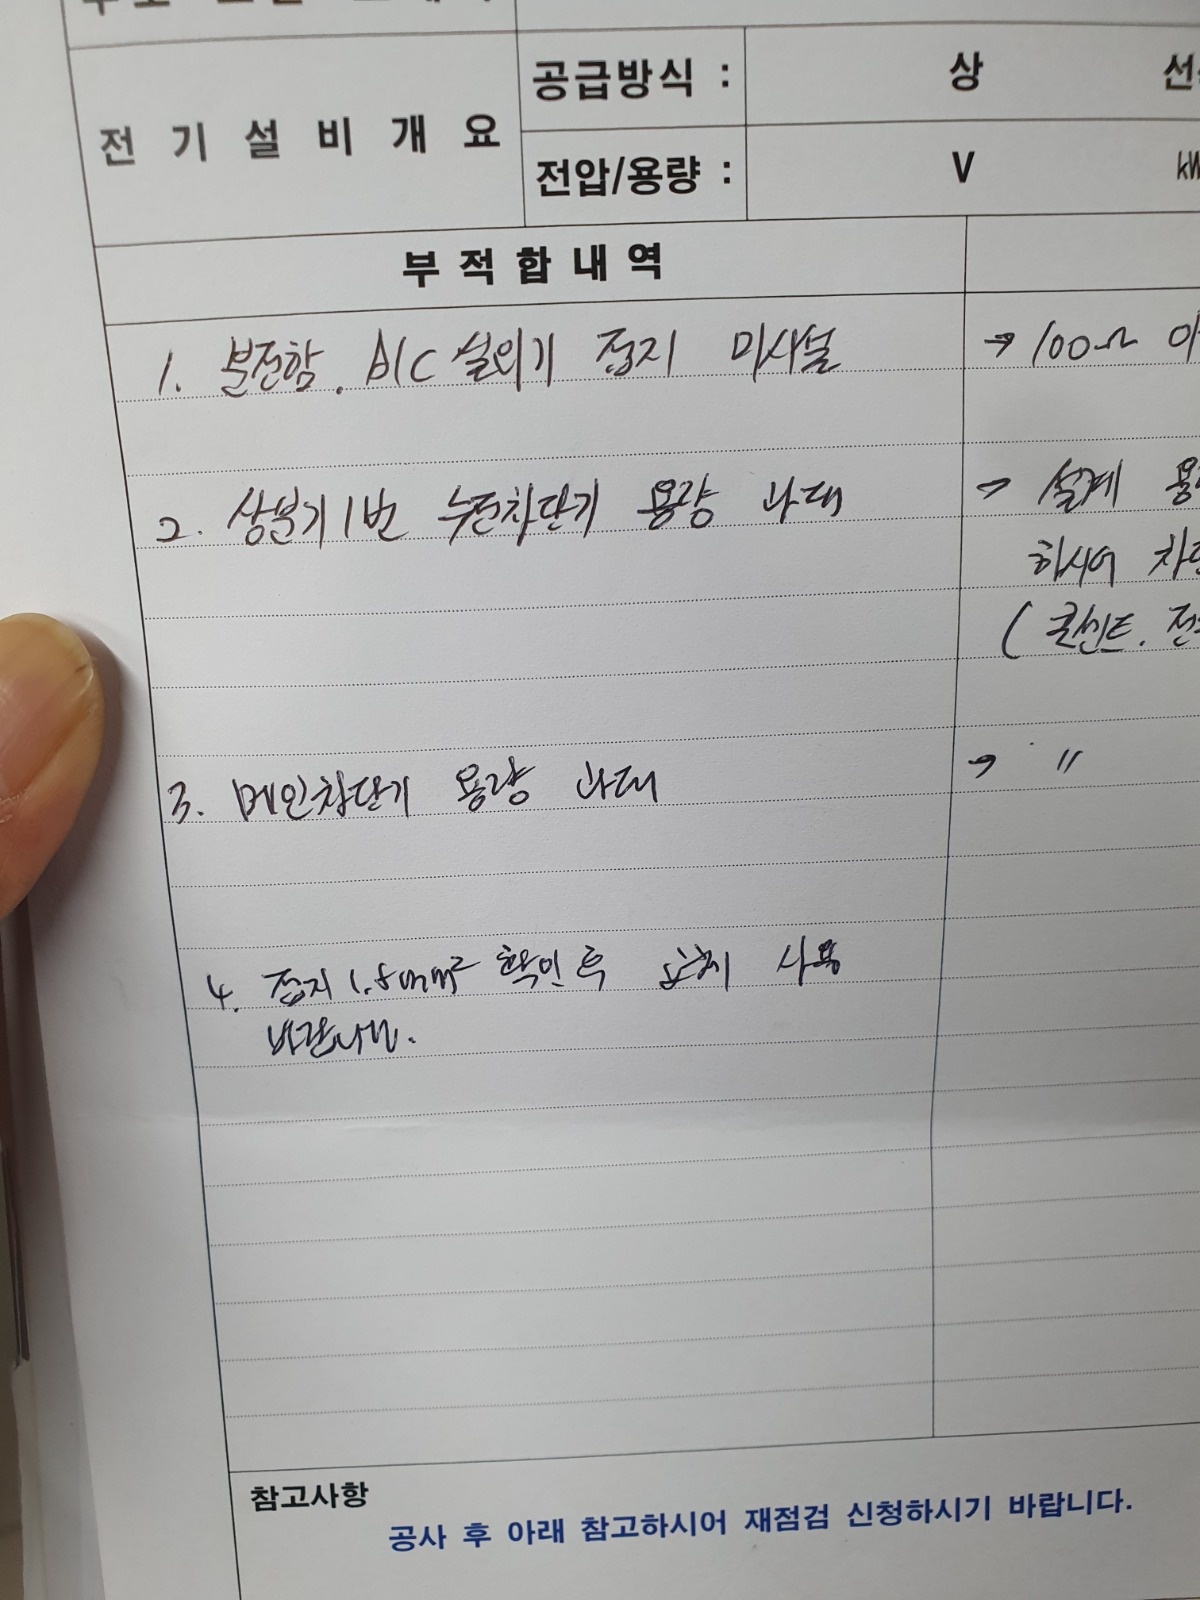 전 기 설 비 개 요
공급방식 : 상 선
전압/용량 : V kW
부 적 합 내 역
1. 분전함. A/C 실외기 접지 미시설 → 100Ω 이
2. 상분기 1번 누전차단기 용량 과대 → 설계 용량
하시어 차단
( 콘센트. 전
3. 메인차단기 용량 과대 → 〃
4. 접지 1.5mm² 확인 후 교체 사용
바랍니다.
참고사항
공사 후 아래 참고하시어 재점검 신청하시기 바랍니다.